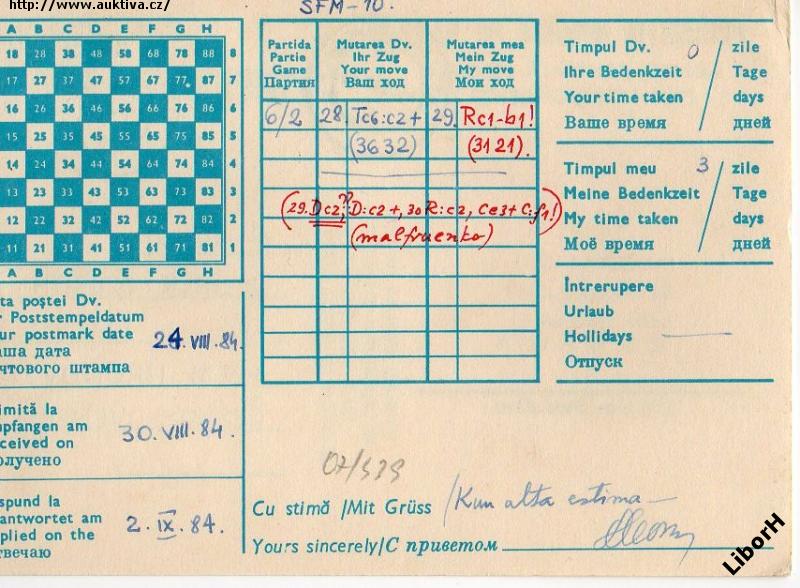 http://www.auktiva.cz/
SFM-10.
A B C D E F G H
18 28 38 48 58 68 78 88 8
17 27 37 47 57 67 77 87 7
16 26 36 46 56 66 76 86 6
15 25 35 45 55 65 75 85 5
14 24 34 44 54 64 74 84 4
13 23 33 43 53 63 73 83 3
12 22 32 42 52 62 72 82 2
11 21 31 41 51 61 71 81 1
A B C D E F G H
ta poştei Dv.
r Poststempeldatum
ur postmark date
аша дата
чтового штампа
24. VIII. 84.
imită la
mpfangen am
ceived on
олучено
30. VIII. 84.
spund la
antwortet am
plied on the
твечаю
2. IX. 84.
Partida
Partie
Game
Партия
Mutarea Dv.
Ihr Zug
Your move
Ваш ход
Mutarea mea
Mein Zug
My move
Мои ход
6/2 28. Tc6:c2+ 29. Rc1-b1!
(3632) (3121).
(29. Dc2??, D:c2+, 30 R:c2, Ce3+ C:f1!)
(malfruenko)
Timpul Dv. 0 / zile
Ihre Bedenkzeit Tage
Your time taken days
Ваше время дней
Timpul meu 3 / zile
Meine Bedenkzeit Tage
My time taken days
Моё время дней
Întrerupere
Urlaub
Hollidays
Отпуск
07/439
Cu stimă /Mit Grüss /Kun alta estima
Yours sincerely/С приветом
LiborH